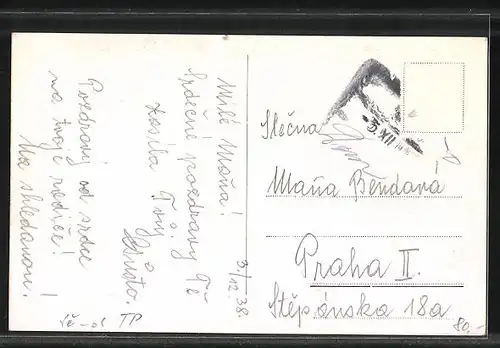 Milá Máňa!
Srdečné pozdravy Tě
zasílá Tvůj
Gusto
3./12. 38.
Pozdravuj od srdce
na tvoje rodiče!
Na shledanou!
Slečna
Máňa Bendová
Praha II.
Štěpánska 18a
3. XII
80,-
TP